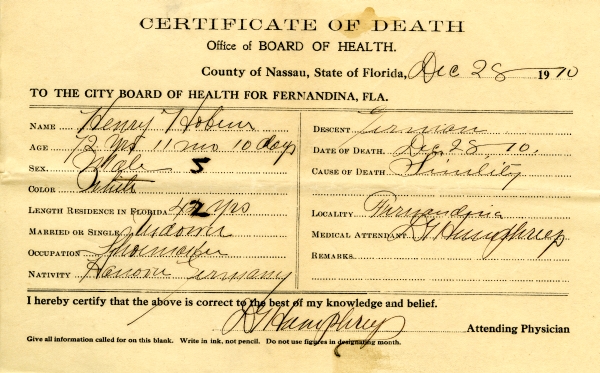 CERTIFICATE OF DEATH
Office of BOARD OF HEALTH.
County of Nassau, State of Florida, Dec 28 1910
TO THE CITY BOARD OF HEALTH FOR FERNANDINA, FLA.
NAME Henry
AGE 72 yrs 11 mo 10 days
SEX Male 5
COLOR White
LENGTH RESIDENCE IN FLORIDA 42 yrs
MARRIED OR SINGLE Widower
OCCUPATION Shoemaker
NATIVITY Hanover Germany
DESCENT German
DATE OF DEATH Dec 28, 10.
CAUSE OF DEATH Sinility
LOCALITY Fernandina
MEDICAL ATTENDANT Humphreys
REMARKS
I hereby certify that the above is correct to the best of my knowledge and belief.
Humphreys Attending Physician
Give all information called for on this blank. Write in ink, not pencil. Do not use figures in designating month.